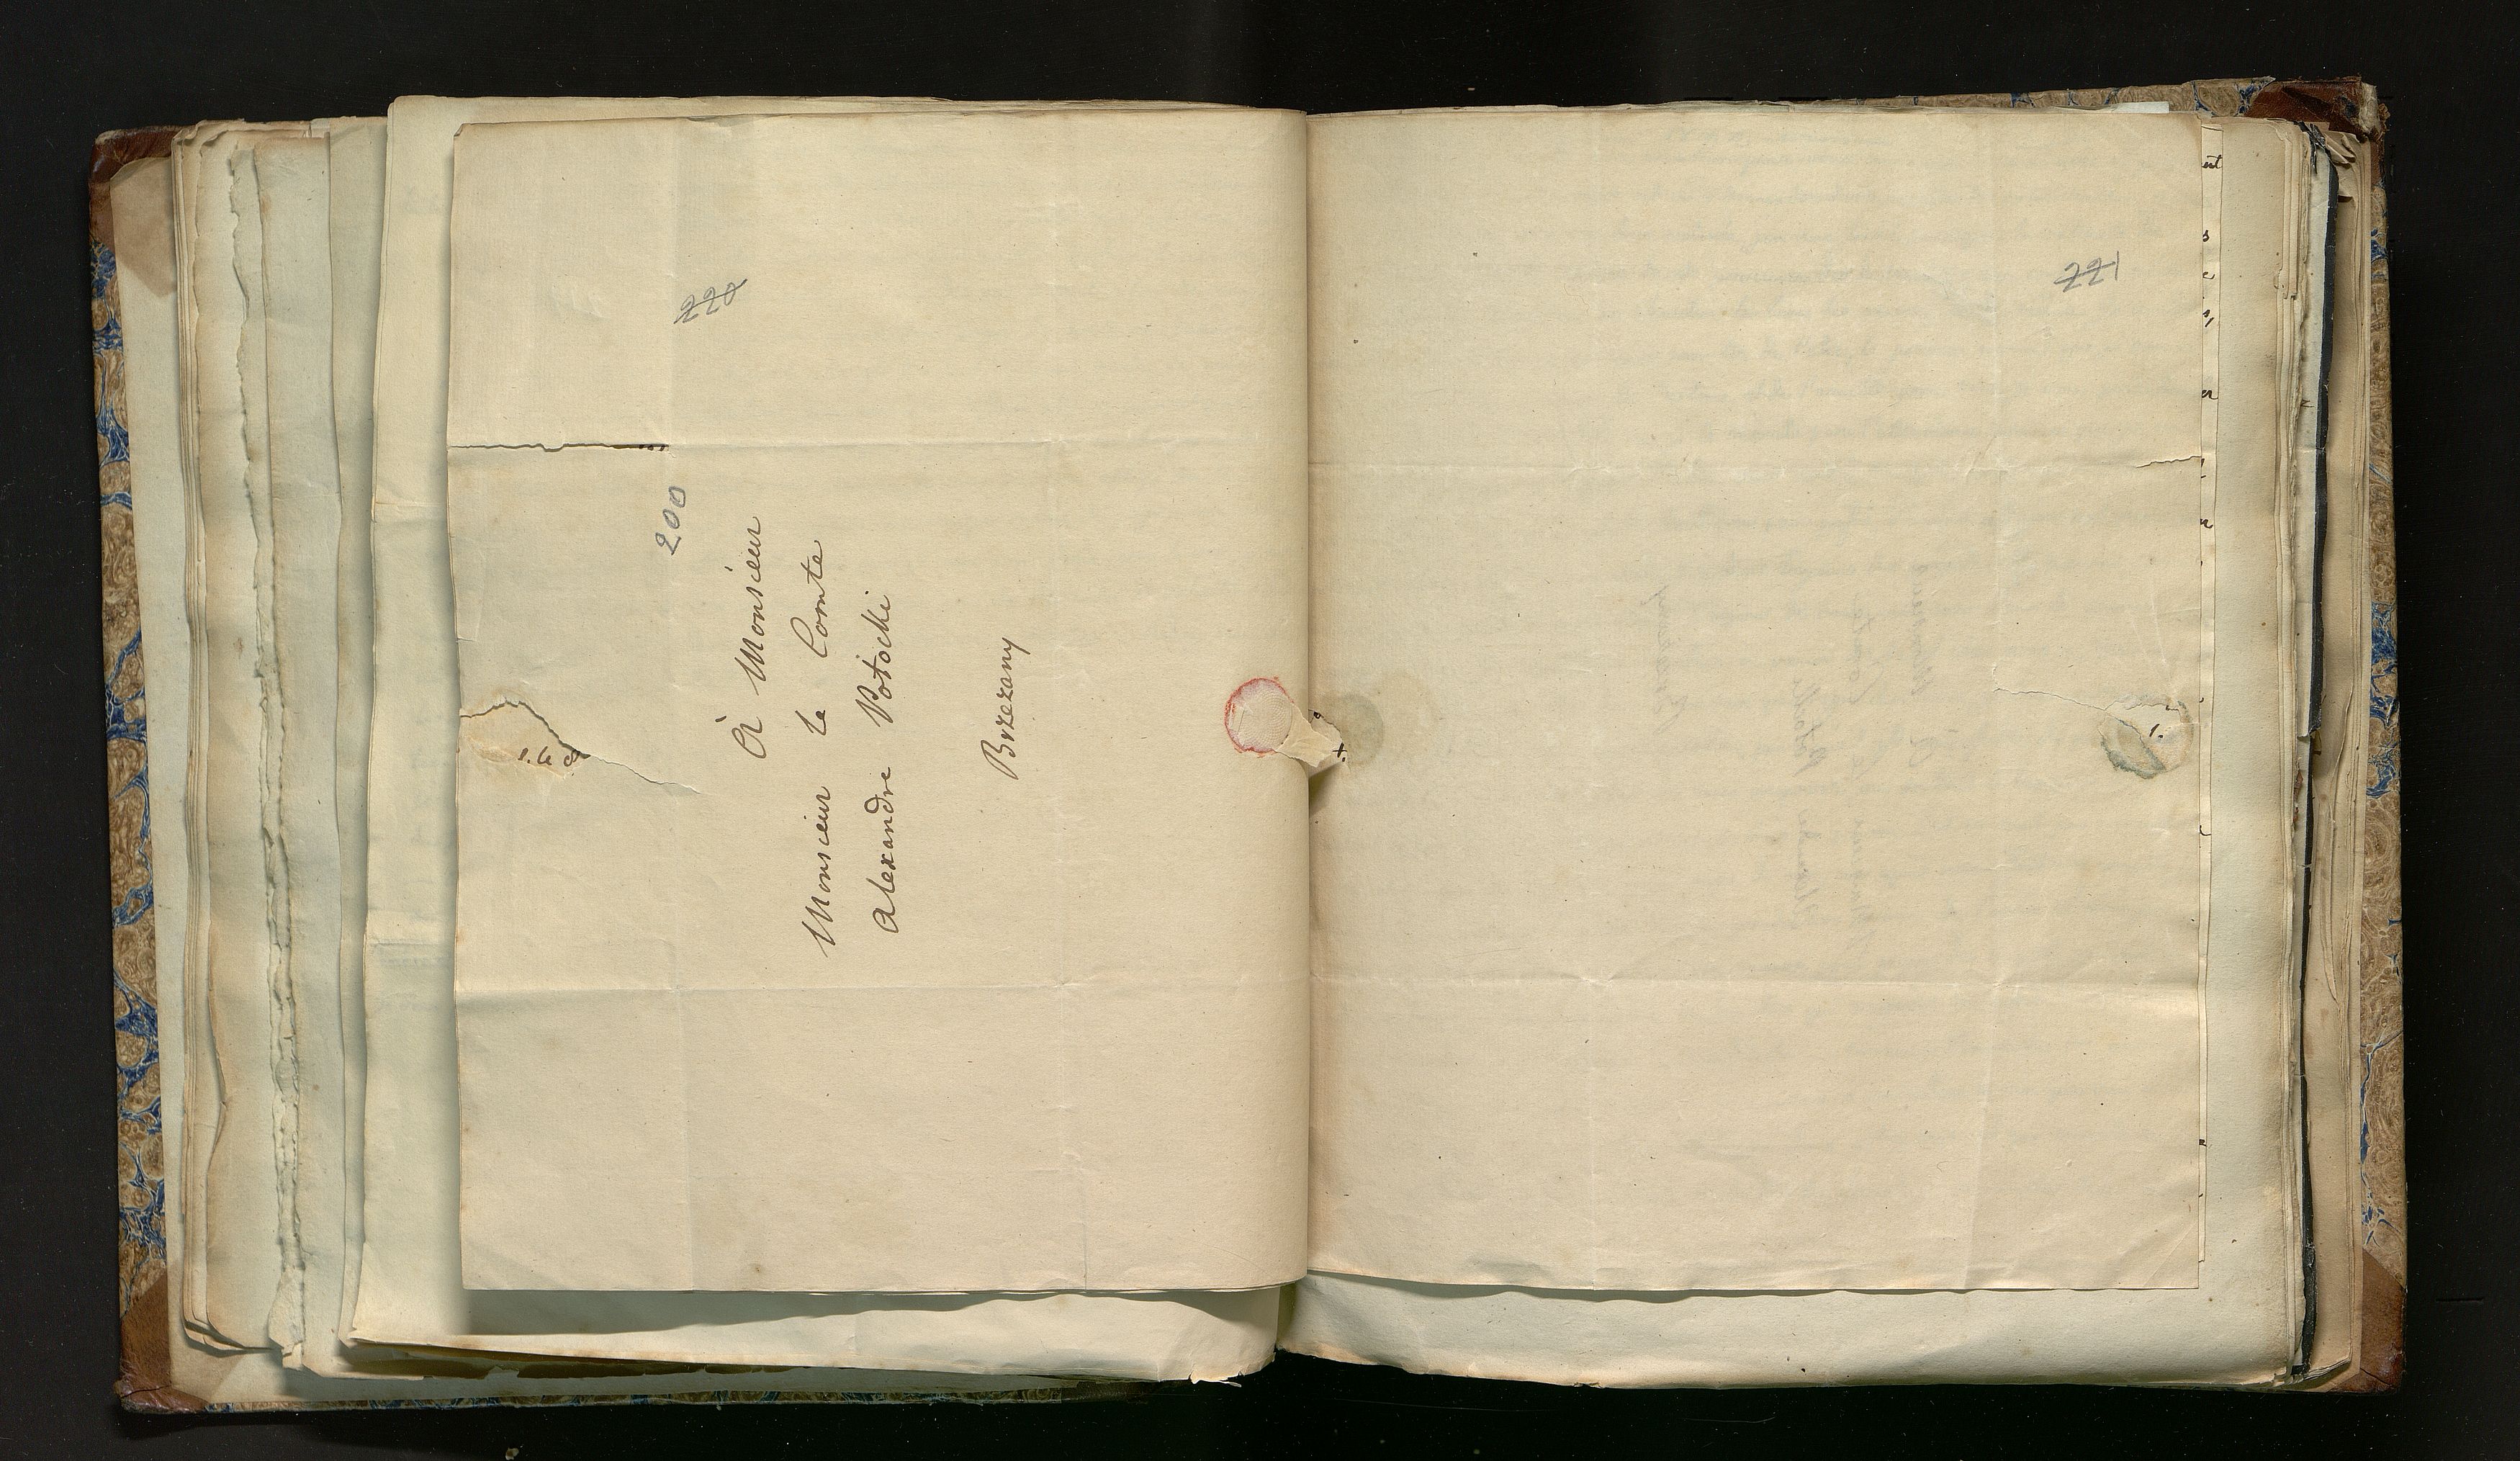 220
200
À Monsieur
Monsieur le Comte
Alexandre Potocki
Brzezany
221